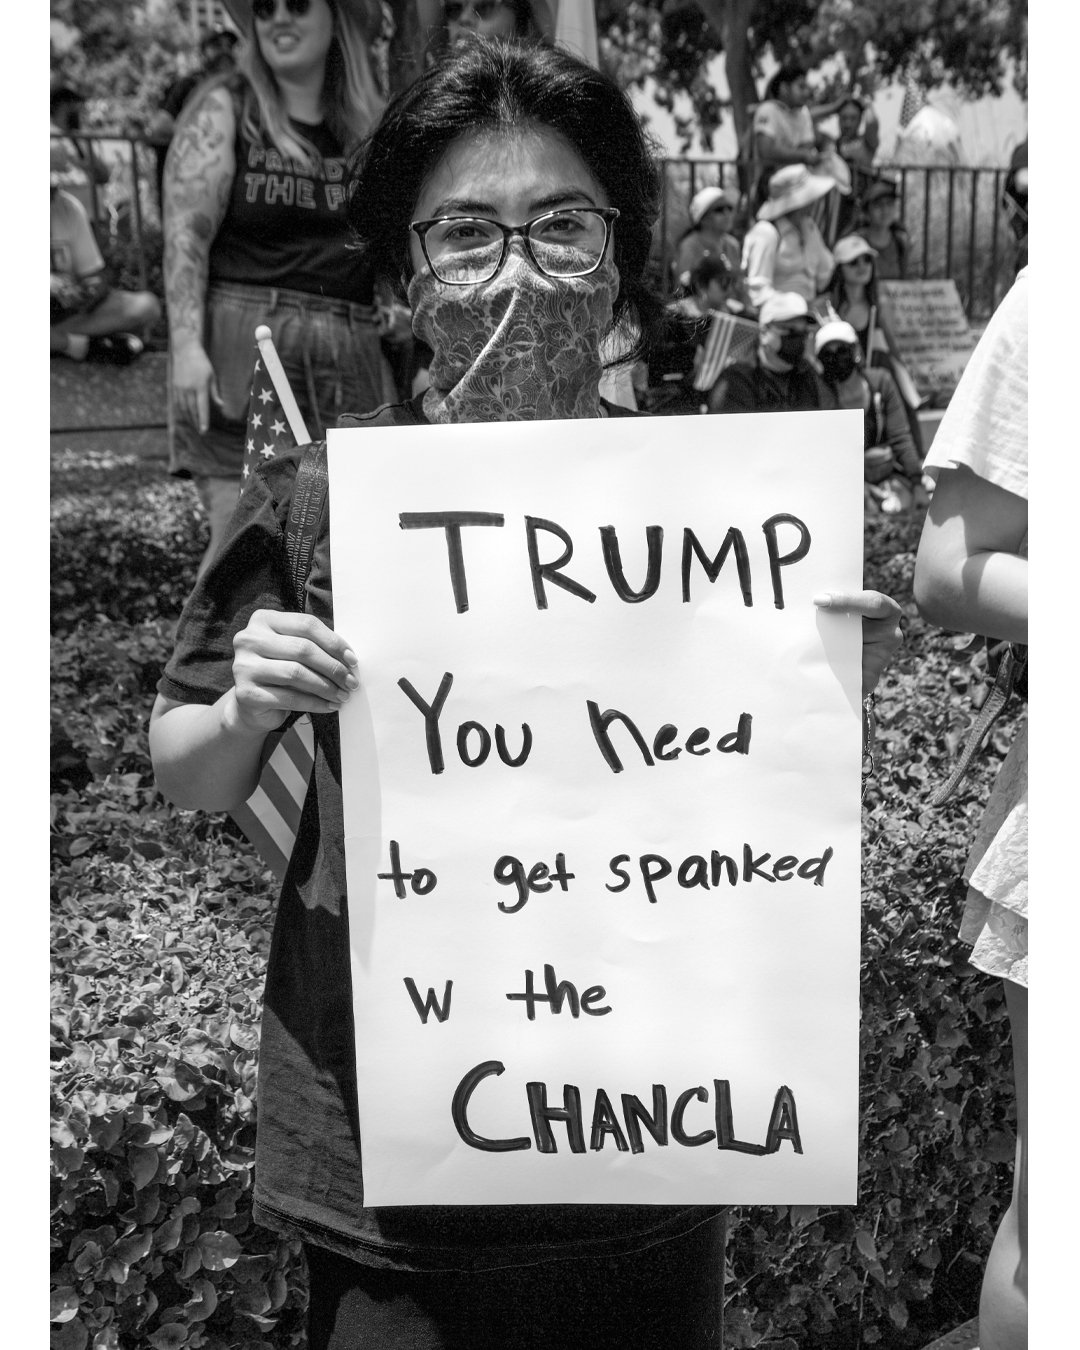 THE
TRUMP
You need
to get spanked
w the
CHANCLA